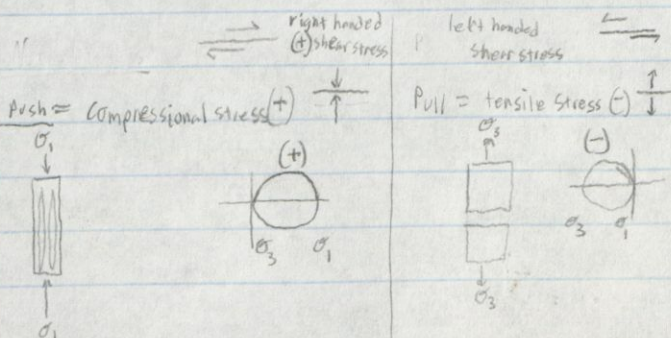 right handed
(+) shear stress
Push = Compressional stress (+)
σ₁
(+)
σ₃ σ₁
σ₁
left handed
shear stress
Pull = tensile stress (-)
σ₃
(-)
σ₃ σ₁
σ₃